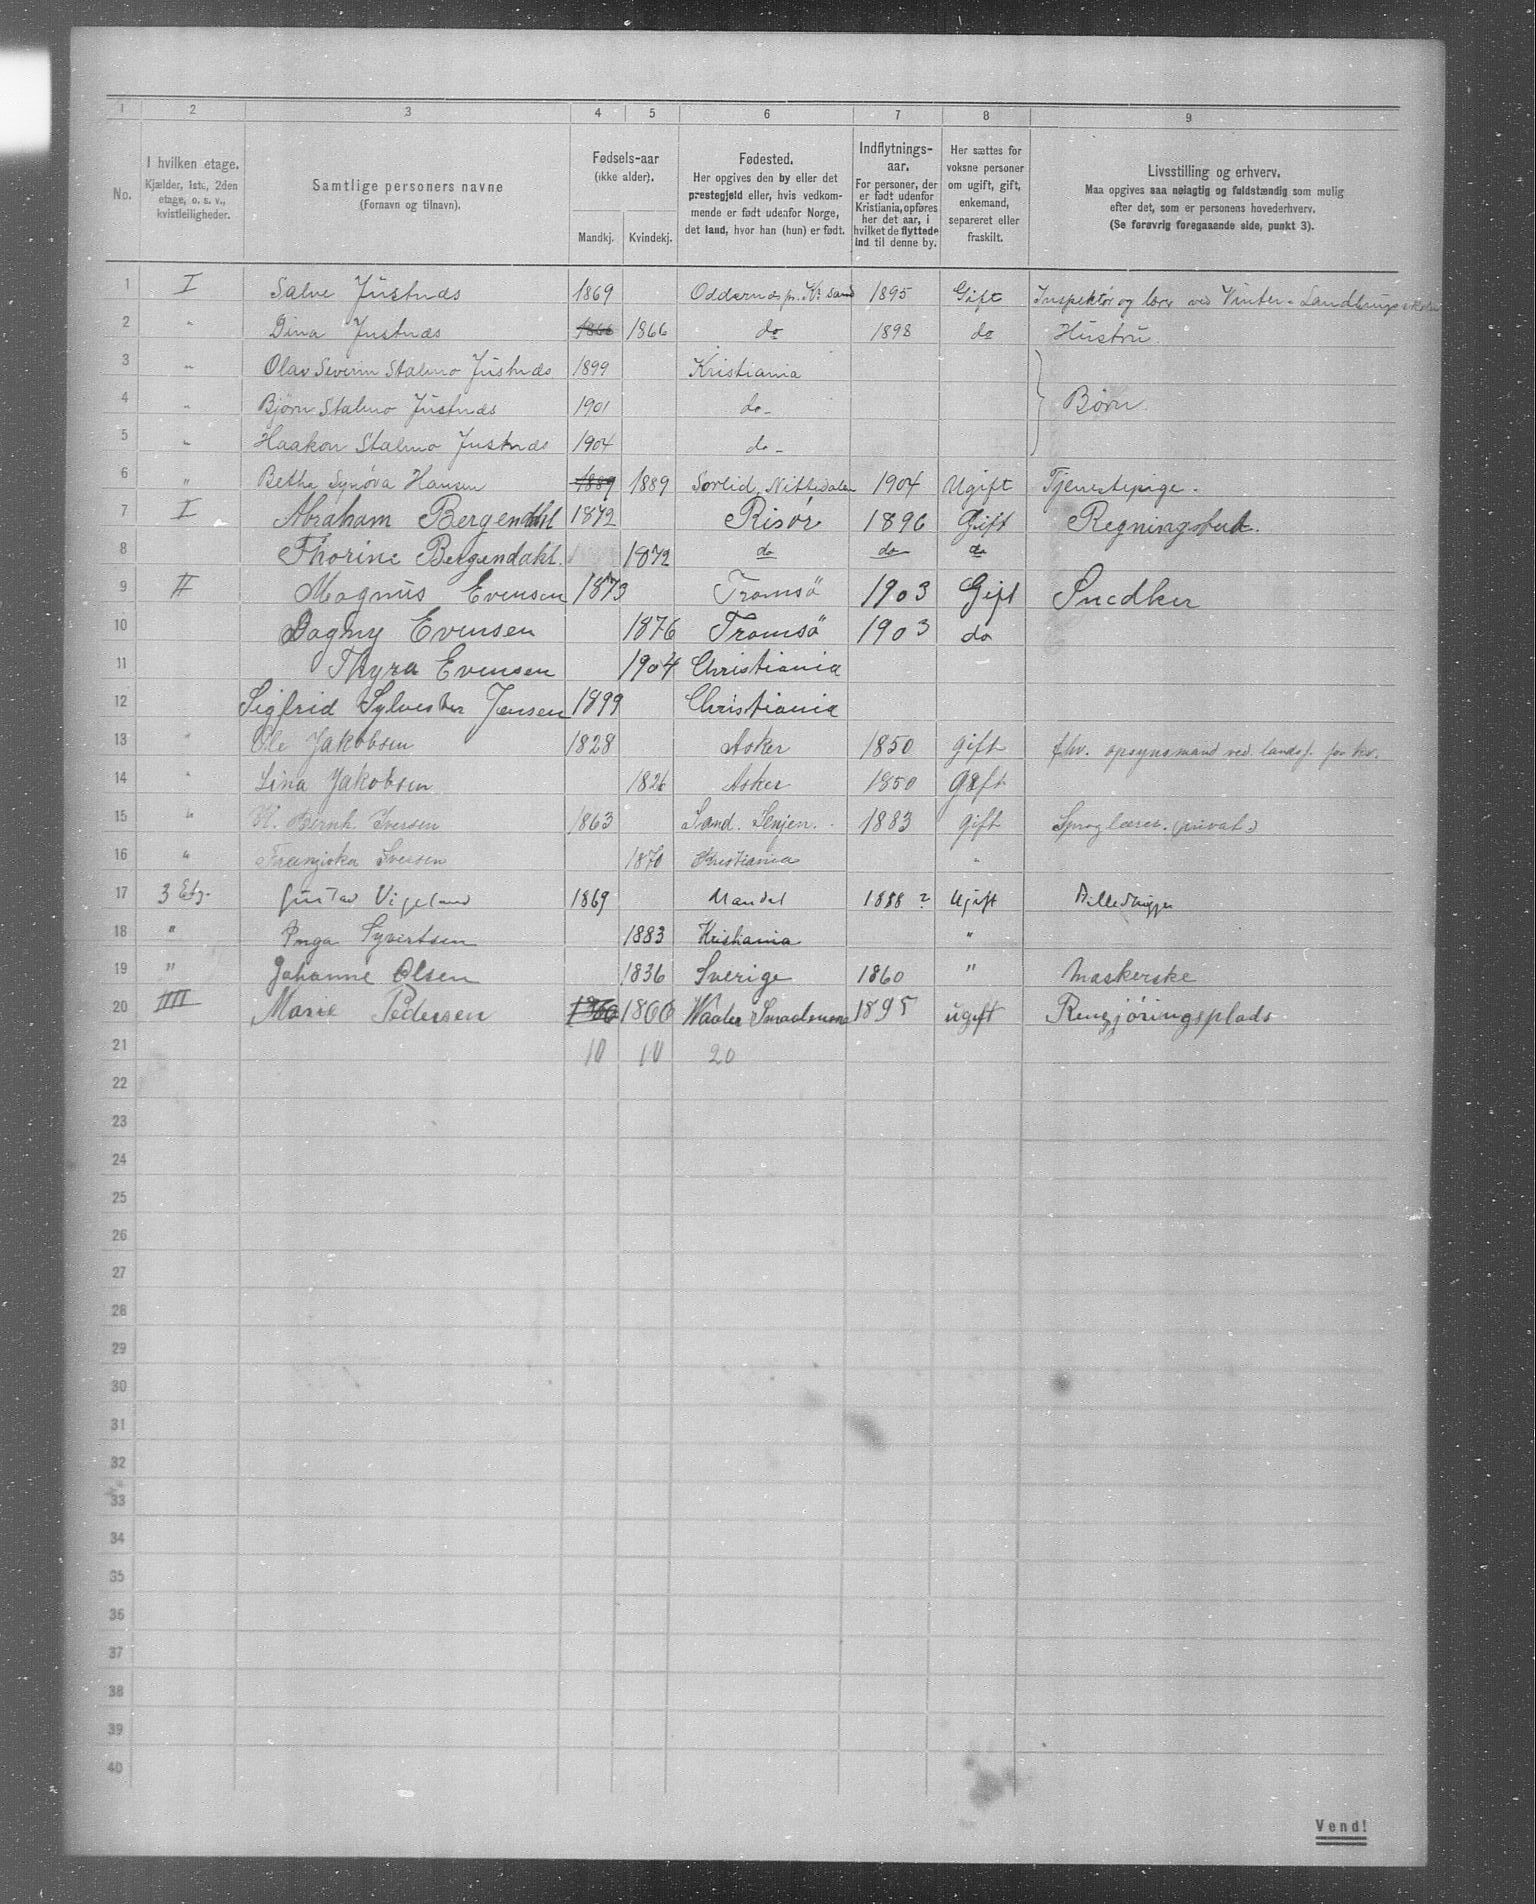 1 2 3 4 5 6 7 8 9
No.
I hvilken etage.
Kjælder, 1ste, 2den
etage, o. s. v.,
kvistleiligheder.
Samtlige personers navne
(Fornavn og tilnavn).
Fødsels-aar
(ikke alder).
Mandkj. Kvindekj.
Fødested.
Her opgives den by eller det
prestegjeld eller, hvis vedkom-
mende er født udenfor Norge,
det land, hvor han (hun) er født.
Indflytnings-
aar.
For personer, der
er født udenfor
Kristiania, opføres
her det aar, i
hvilket de flyttede
ind til denne by.
Her sættes for
voksne personer
om ugift, gift,
enkemand,
separeret eller
fraskilt.
Livsstilling og erhverv.
Maa opgives saa nøiagtig og fuldstændig som mulig
efter det, som er personens hovederhverv.
(Se forøvrig foregaaende side, punkt 3).
1 I Salve Justnæs 1869 Oddernæs p. Kr sand 1895 Gift Inspektør og lærer ved Vinter-Landbrugsskolen
2 " Dina Justnæs 1866 1866 do 1898 do Hustru
3 " Olav Severin Stalmo Justnæs 1899 Kristiania
4 " Bjørn Stalmo Justnæs 1901 do- Børn
5 " Haakon Stalmo Justnæs 1904 do-
6 " Bethe Synøva Hansen 1889 1889 Nittedalen 1904 Ugift Tjenestepige.
7 I Abraham Bergendahl 1872 Risør 1896 Gift
8 Thorine Bergendahl. 1872 do do do
9 II Magnus Evensen 1873 Tromsö 1903 Gift Snedker
10 Dagny Evensen 1876 Tromsö 1903 do
11 Thyra Evensen 1904 Christiania
12 Sigfrid Sylvester Jensen 1899 Christiania
13 " Ole Jakobsen 1828 Asker 1850 gift fhv. opsynsmand ved landsf. for kv.
14 " Lina Jakobsen 1826 Asker 1850 Gift
15 " K. Bernh. Iversen 1863 Sand. Senjen. 1883 gift Sproglærer. (privat)
16 " Franziska Iversen 1870 Kristiania "
17 3 Etg. Gustav Vigeland 1869 Mandal 1888 ? Ugift Billedhugger
18 " Inga Syvertsen 1883 Kristiania "
19 " Johanne Olsen 1836 Sverige 1860 " Maskerske
20 IIII Marie Pedersen 1866 1866 Waaler Smaalenene 1895 ugift Rengjøringsplads
21 10 10 20
22
23
24
25
26
27
28
29
30
31
32
33
34
35
36
37
38
39
40
Vend!